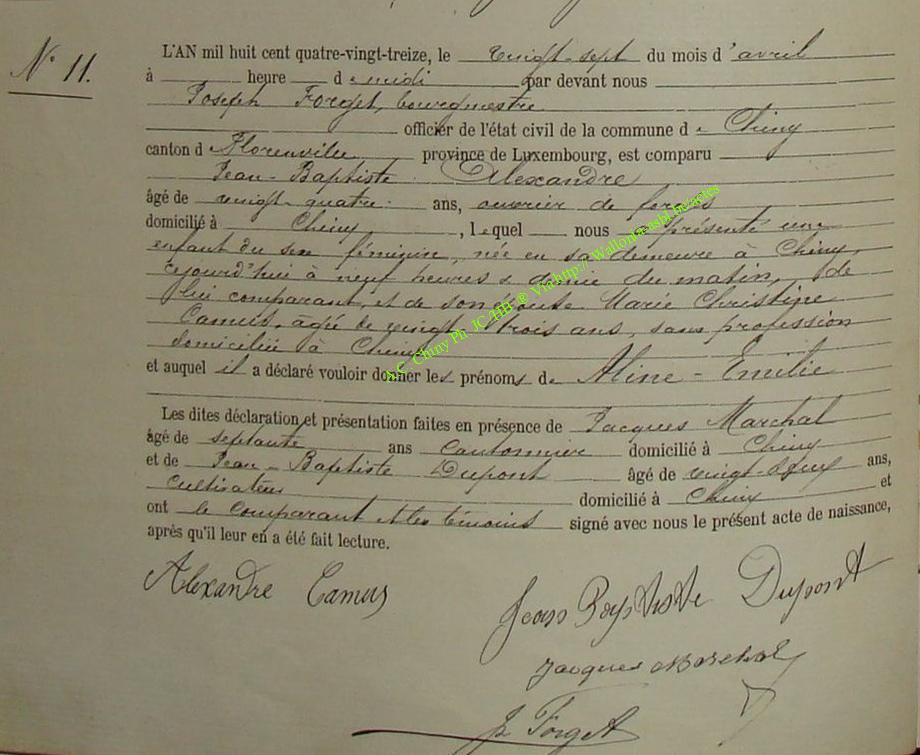 N° 11.
L'AN mil huit cent quatre-vingt-treize, le vingt-sept du mois d'avril
à heure de midi par devant nous
Joseph Forget, bourgmestre
officier de l'état civil de la commune de Chiny
canton de Florenville province de Luxembourg, est comparu
Jean-Baptiste Alexandre
âgé de vingt-quatre ans, ouvrier de forges
domicilié à Chiny, lequel nous a présenté une
enfant du sexe féminin, née en sa demeure à Chiny
cejourd'hui à neuf heures & demie du matin, de
lui comparant, et de son épouse Marie Christine
Camus, âgée de vingt-trois ans, sans profession
domiciliée à Chiny
et auquel il a déclaré vouloir donner les prénoms de Aline-Emilie
Les dites déclaration et présentation faites en présence de Jacques Marchal
âgé de septante ans cantonnier domicilié à Chiny
et de Jean-Baptiste Dupont âgé de vingt-deux ans,
cultivateur domicilié à Chiny et
ont le comparant et les témoins signé avec nous le présent acte de naissance,
après qu'il leur en a été fait lecture.
Alexandre Camus
Jean Baptiste Dupont
Jacques Marchal
J. Forget
A.C. Chiny Ph JC/HB ® Via http://Wallonia.asbl.be/actes